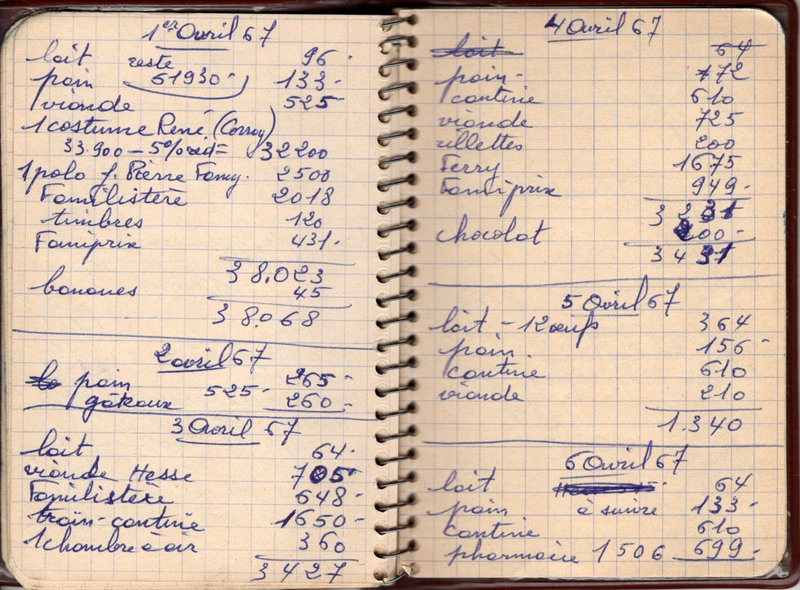 1er Avril 67
lait reste 96-
pain 61930- 133-
viande 525
1 costume René (Conroy)
33.900 - 5% red = 32200
1 polo f. Pierre Famy. 2500
Familistère 2018
timbres 120
Famiprix 431-
38.023
bananes 45
38.068
2 avril 67
pain 265-
gâteaux 525- 260-
3 Avril 67
lait 64-
viande Hesse 705-
Familistère 648-
train-cantine 1650-
1 chambre à air 360
3427
4 Avril 67
lait 64
pain- 172
cantine 610
viande 725
rillettes 200
Ferry 1675
Famiprix 949-
3231
chocolat 200-
3431
5 Avril 67
lait - 12 œufs 364
pain 156-
cantine 610
viande 210
1.340
6 Avril 67
lait 64
pain à suivre 133-
cantine 610
pharmacie 1506 699-